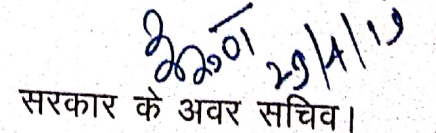 29/4/19
सरकार के अवर सचिव।